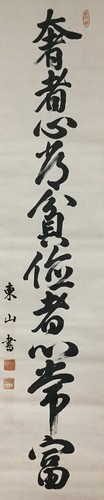 奢者心常貧儉者心常富
東山書